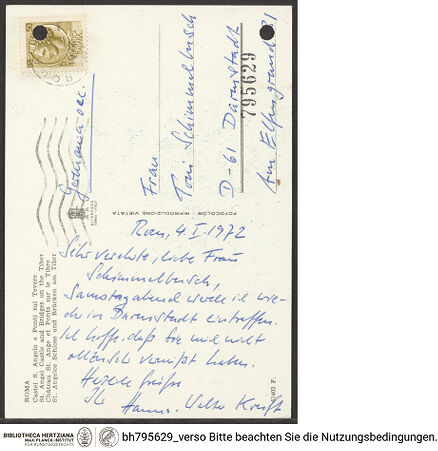 Rom, 4. I. 1972
Sehr verehrte, liebe Frau
Schimmelbusch,
Samstagabend werde ich wie-
der in Darmstadt eintreffen.
Ich hoffe, daß Sie mich nicht
vermißt haben.
Herzliche Grüße
Ihr Hanns-Walter Kruft
Germania occ.
Frau
Toni Schimmelbusch
D-61 Darmstadt
795629
FOTOCOLOR - RIPRODUZIONE VIETATA
ROMA
Castel S. Angelo e Ponti sul Tevere
St. Angel Castle and Bridges on the Tiber
Château St. Ange et Ponts sur le Tibre
St. Angelos Schloss und Brücken am Tiber
BIBLIOTHECA HERTZIANA
MAX-PLANCK-INSTITUT
FÜR KUNSTGESCHICHTE
bh795629_verso Bitte beachten Sie die Nutzungsbedingungen.